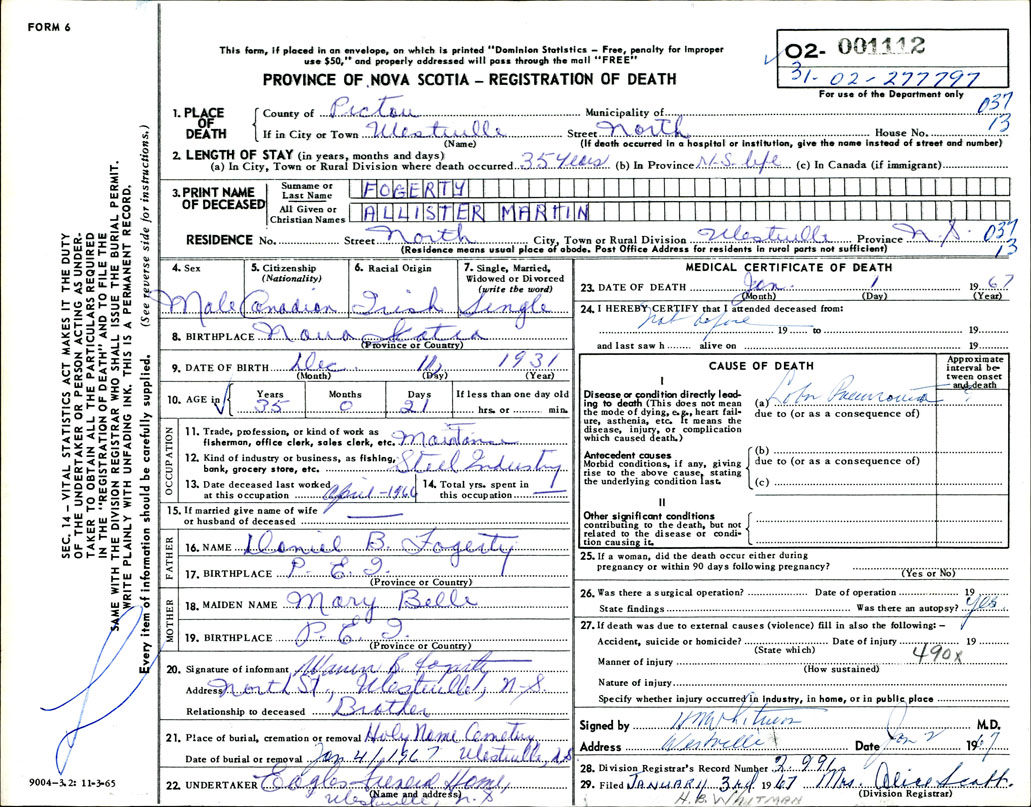 FORM 6
This form, if placed in an envelope, on which is printed "Dominion Statistics – Free, penalty for improper
use $50," and properly addressed will pass through the mail "FREE"
PROVINCE OF NOVA SCOTIA – REGISTRATION OF DEATH
02- 001112
31-02-277797
For use of the Department only
037
13
SEC. 14 – VITAL STATISTICS ACT MAKES IT THE DUTY
OF THE UNDERTAKER OR PERSON ACTING AS UNDER-
TAKER TO OBTAIN ALL THE PARTICULARS REQUIRED
IN THE "REGISTRATION OF DEATH" AND TO FILE THE
SAME WITH THE DIVISION REGISTRAR WHO SHALL ISSUE THE BURIAL PERMIT.
WRITE PLAINLY WITH UNFADING INK. THIS IS A PERMANENT RECORD.
Every item of information should be carefully supplied. (See reverse side for instructions.)
1. PLACE OF DEATH
County of Pictou Municipality of
If in City or Town Westville Street North House No.
(Name) (If death occurred in a hospital or institution, give the name instead of street and number)
2. LENGTH OF STAY (in years, months and days)
(a) In City, Town or Rural Division where death occurred 35 years (b) In Province N.S. life (c) In Canada (if immigrant)
3. PRINT NAME OF DECEASED
Surname or Last Name FOGERTY
All Given or Christian Names ALLISTER MARTIN
RESIDENCE No. Street North City, Town or Rural Division Westville Province N.S. 037
13
(Residence means usual place of abode. Post Office Address for residents in rural parts not sufficient)
4. Sex 5. Citizenship (Nationality) 6. Racial Origin 7. Single, Married, Widowed or Divorced (write the word)
Male Canadian Irish Single
8. BIRTHPLACE Nova Scotia
(Province or Country)
9. DATE OF BIRTH Dec 11, 1931
(Month) (Day) (Year)
10. AGE in Years Months Days If less than one day old
35 0 21 hrs. or min.
OCCUPATION
11. Trade, profession, or kind of work as
fisherman, office clerk, sales clerk, etc.
12. Kind of industry or business, as fishing,
bank, grocery store, etc. Steel Industry
13. Date deceased last worked
at this occupation April-1966
14. Total yrs. spent in
this occupation
15. If married give name of wife
or husband of deceased
FATHER
16. NAME Daniel B. Fogerty
17. BIRTHPLACE P.E.I.
(Province or Country)
MOTHER
18. MAIDEN NAME Mary Belle
19. BIRTHPLACE P.E.I.
(Province or Country)
20. Signature of informant
Address North St., Westville, N-S.
Relationship to deceased Brother
21. Place of burial, cremation or removal Holy Name Cemetery
Date of burial or removal Jan 4/1967 Westville, N.S
22. UNDERTAKER Eagles Funeral Home,
(Name and address)
Westville, N.S
9004-3.2: 11-3-65
MEDICAL CERTIFICATE OF DEATH
23. DATE OF DEATH Jan. 1 1967
(Month) (Day) (Year)
24. I HEREBY CERTIFY that I attended deceased from:
not before 19 to 19
and last saw h alive on 19
CAUSE OF DEATH
Approximate interval between onset and death
I
Disease or condition directly leading to death (This does not mean the mode of dying, e.g., heart failure, asthenia, etc. It means the disease, injury, or complication which caused death.)
(a) Lobar Pneumonia ?
due to (or as a consequence of)
Antecedent causes
Morbid conditions, if any, giving rise to the above cause, stating the underlying condition last.
(b)
due to (or as a consequence of)
(c)
II
Other significant conditions
contributing to the death, but not related to the disease or condition causing it.
25. If a woman, did the death occur either during
pregnancy or within 90 days following pregnancy?
(Yes or No)
26. Was there a surgical operation? Date of operation 19
State findings Was there an autopsy? Yes
27. If death was due to external causes (violence) fill in also the following: –
Accident, suicide or homicide? Date of injury 19
(State which) 490X
Manner of injury
(How sustained)
Nature of injury
Specify whether injury occurred in industry, in home, or in public place
Signed by HMWhitman M.D.
Address Westville Date Jan 2 1967
28. Division Registrar's Record Number 2.991
29. Filed JANUARY 3rd 1967 Mrs. Alice Scott.
(Division Registrar)
H.B. WHITMAN